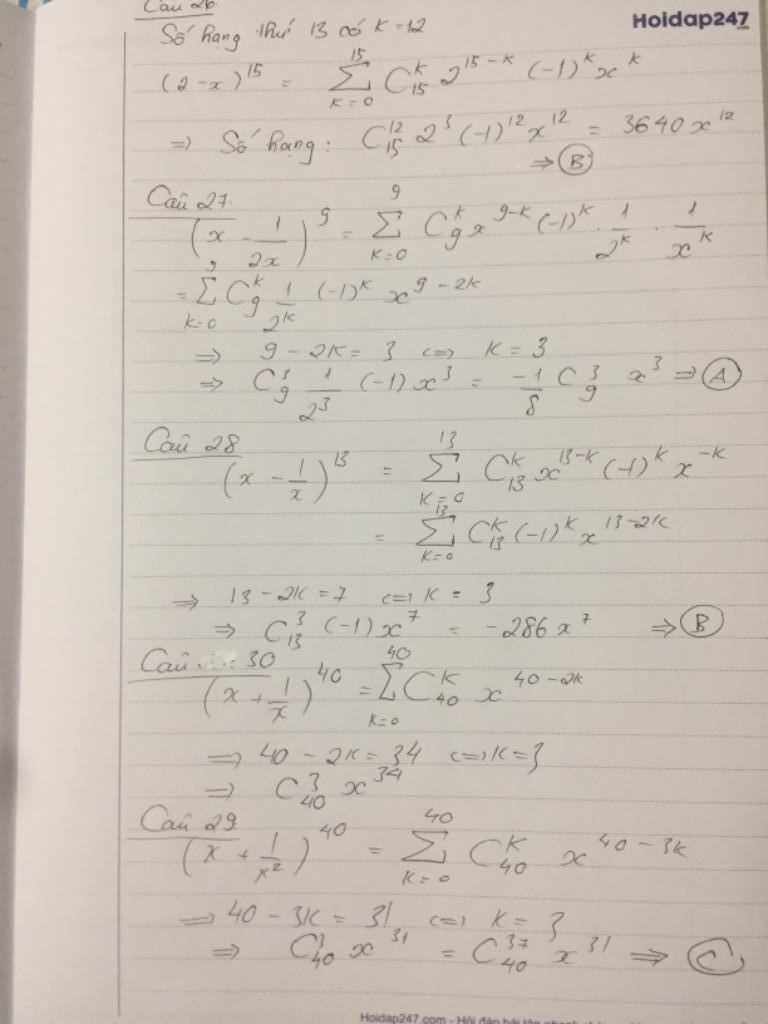 Câu 26.
Hoidap247
Số hạng thứ 13 có k = 12
(2-x)^15 = ∑_{k=0}^{15} C_15^k 2^{15-k} (-1)^k x^k
=> Số hạng: C_15^12 2^3 (-1)^12 x^12 = 3640 x^12
=> B
Câu 27.
(x - 1/2x)^9 = ∑_{k=0}^{9} C_9^k x^{9-k} (-1)^k . 1/2^k . 1/x^k
= ∑_{k=0}^{9} C_9^k 1/2^k (-1)^k x^{9-2k}
=> 9 - 2k = 3 <=> k = 3
=> C_9^3 1/2^3 (-1) x^3 = -1/8 C_9^3 x^3 => A
Câu 28
(x - 1/x)^13 = ∑_{k=0}^{13} C_13^k x^{13-k} (-1)^k x^{-k}
= ∑_{k=0}^{13} C_13^k (-1)^k x^{13-2k}
=> 13 - 2k = 7 <=> k = 3
=> C_13^3 (-1) x^7 = -286 x^7 => B
Câu 30
(x + 1/x)^40 = ∑_{k=0}^{40} C_40^k x^{40-2k}
=> 40 - 2k = 34 <=> k = 3
=> C_40^3 x^34
Câu 29
(x + 1/x^2)^40 = ∑_{k=0}^{40} C_40^k x^{40-3k}
=> 40 - 3k = 31 <=> k = 3
=> C_40^3 x^31 = C_40^37 x^31 => C
Hoidap247.com - Hỏi đáp bài tập nhanh